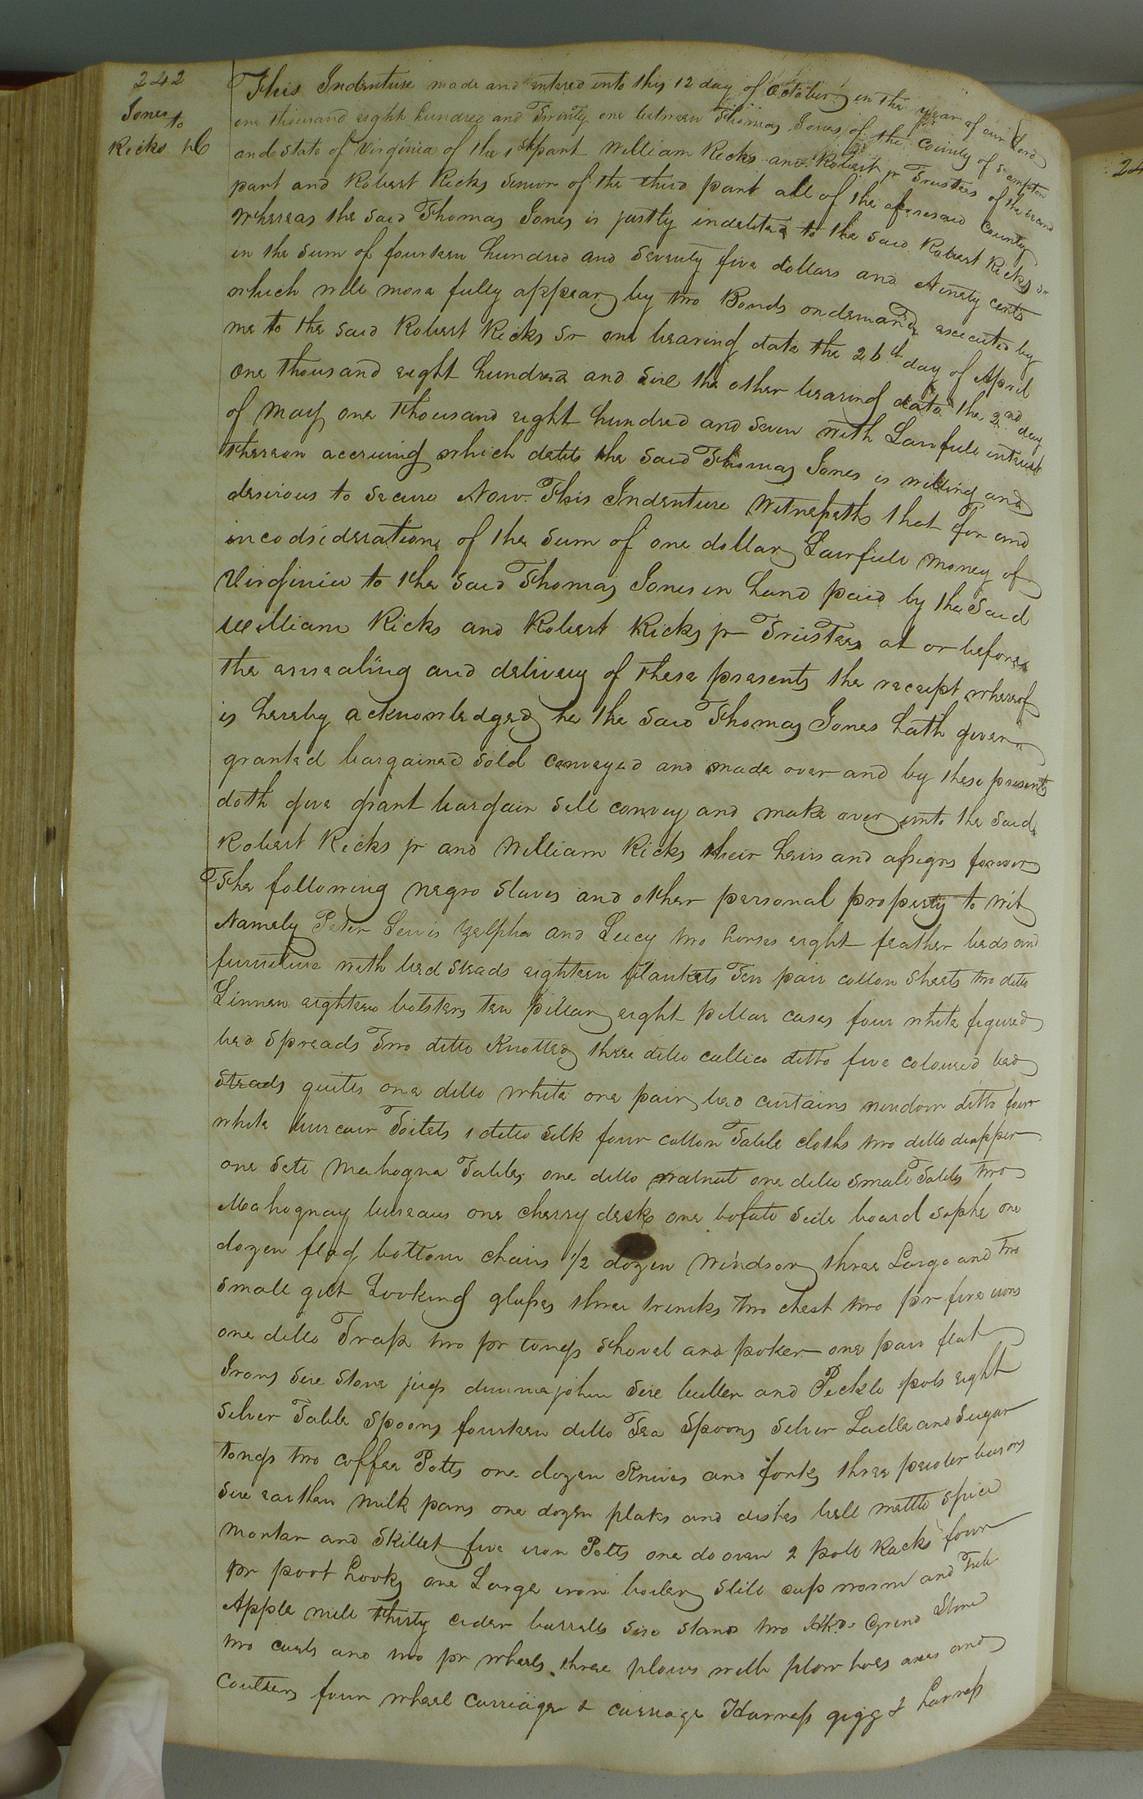 242
Jones
to
Ricks &C
This Indenture made and entered into this 12 day of October in the year of our Lord
one thousand eight hundred and Twenty one between Thomas Jones of the County of
and State of Virginia of the 1st part William Ricks and Robert jr Trustees of the second
part and Robert Ricks Senior of the third part all of the aforesaid County
Whereas the said Thomas Jones is justly indebted to the said Robert Ricks Sr
in the sum of fourteen hundred and seventy five dollars and Ninety cents
which will more fully appear by two Bonds on demand executed by
me to the said Robert Ricks Sr one bearing date the 26th day of April
One thousand eight hundred and six the other bearing date the 2nd day
of May one thousand eight hundred and seven with Lawfull interest
thereon accruing which debts the said Thomas Jones is willing and
desirous to secure Now This Indenture Witnesseth that for and
in codsideration of the sum of one dollar Lawfull money of
Virginia to the said Thomas Jones in hand paid by the said
William Ricks and Robert Ricks jr Trustees at or before
the ensealing and delivery of these presents the receipt whereof
is hereby acknowledged he the said Thomas Jones hath given
granted bargained sold conveyed and made over and by these presents
doth give grant bargain sell convey and make over unto the said
Robert Ricks jr and William Ricks their heirs and assigns forever
The following negro slaves and other personal property to wit
Namely Peter Lewis Zylpha and Lucy two horses eight feather beds and
furniture with bed steads eighteen blankets Ten pair cotton sheets two ditto
Linnen eighteen bolsters ten pillar eight pillar cases four white figured
bed spreads Two ditto Knotted three ditto callico ditto five coloured bed
Steads quilts one ditto white one pair bed curtains window ditto four
white Toilets 1 ditto silk four cotton Table cloths two ditto diapper
one sett Mahogna Tables one ditto walnut one ditto small Table two
Mahognay bureaus one cherry desk one bofatt side board sopha one
dozen flag bottom chairs 1/2 dozen Windsor three Large and two
small gilt Looking glasses three trunks two chest two pr fire irons
one ditto Trap two pr tongs shovel and poker one pair flat
Irons six stone jugs dimmajohn six butter and Pickle pots eight
silver Table spoons fourteen ditto Tea Spoons silver Ladle and sugar
tongs two coffee Potts one dozen Knives and forks three pewter basons
six earthen milk pans one dozen plates and dishes bell mettle spice
mortar and skillet five iron Potts one do oven 2 pott Racks four
pr poot hooks one Large iron boiler still cap worm and Tub
Apple mill thirty cider barrells six stand two Hhds Grind Stone
two carts and two pr wheels three plows with plow hoes axes and
Coulters four wheel carriage & carriage Harness gigg & harness